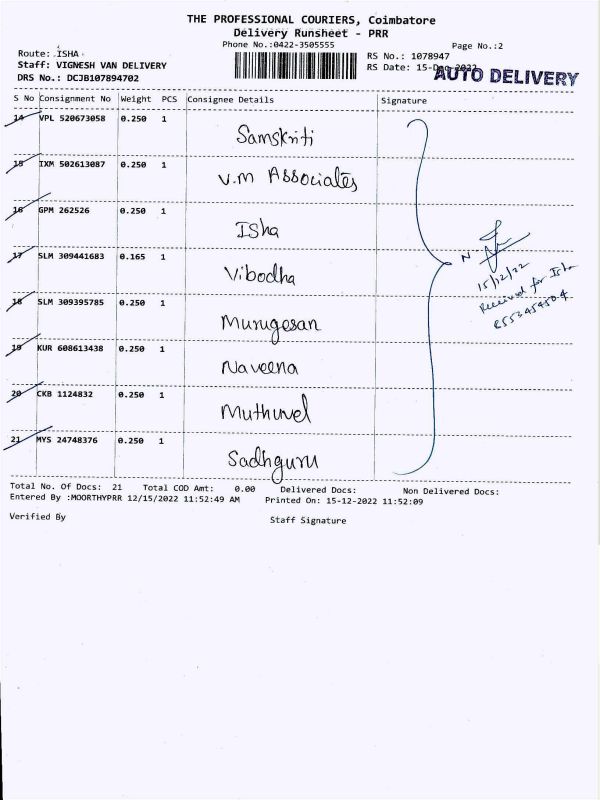 THE PROFESSIONAL COURIERS, Coimbatore
Delivery Runsheet - PRR
Phone No.:0422-3505555
Page No.:2
Route: ISHA
Staff: VIGNESH VAN DELIVERY
DRS No.: DCJB107894702
RS No.: 1078947
RS Date: 15-Dec-2022
AUTO DELIVERY
S No Consignment No Weight PCS Consignee Details Signature
14 VPL 520673058 0.250 1 Samskriti
15 IXM 502613087 0.250 1 V.M Associates
16 GPM 262526 0.250 1 Isha
17 SLM 309441683 0.165 1 Vibodha
18 SLM 309395785 0.250 1 Murugesan
19 KUR 608613438 0.250 1 Naveena
20 CKB 1124832 0.250 1 Muthuvel
21 MYS 24748376 0.250 1 Sadhguru
N.
15/12/22
Received for Isha
Total No. Of Docs: 21 Total COD Amt: 0.00 Delivered Docs: Non Delivered Docs:
Entered By :MOORTHYPRR 12/15/2022 11:52:49 AM Printed On: 15-12-2022 11:52:09
Verified By Staff Signature